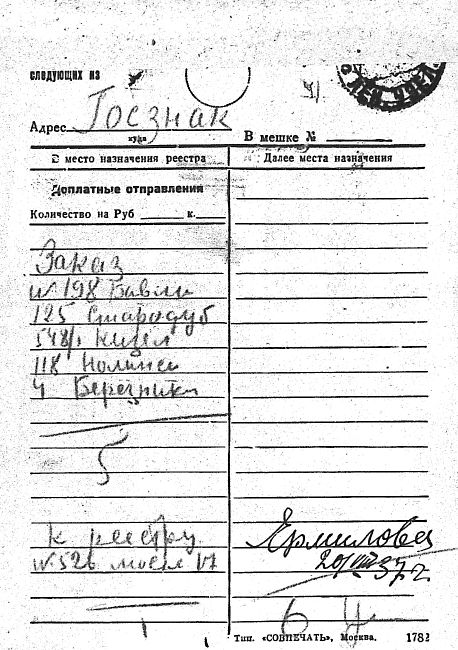 следующих из
Адрес Госзнак
куда
В мешке №
В место назначения реестра
Далее места назначения
Доплатные отправления
Количество на Руб к.
Заказ
№ 198
125 Стародуб
548/1 Кизел
118
4 Березники
5
к реестру
№ 526
20/VIII 37 г.
Тип. «СОВПЕЧАТЬ», Москва. 1782